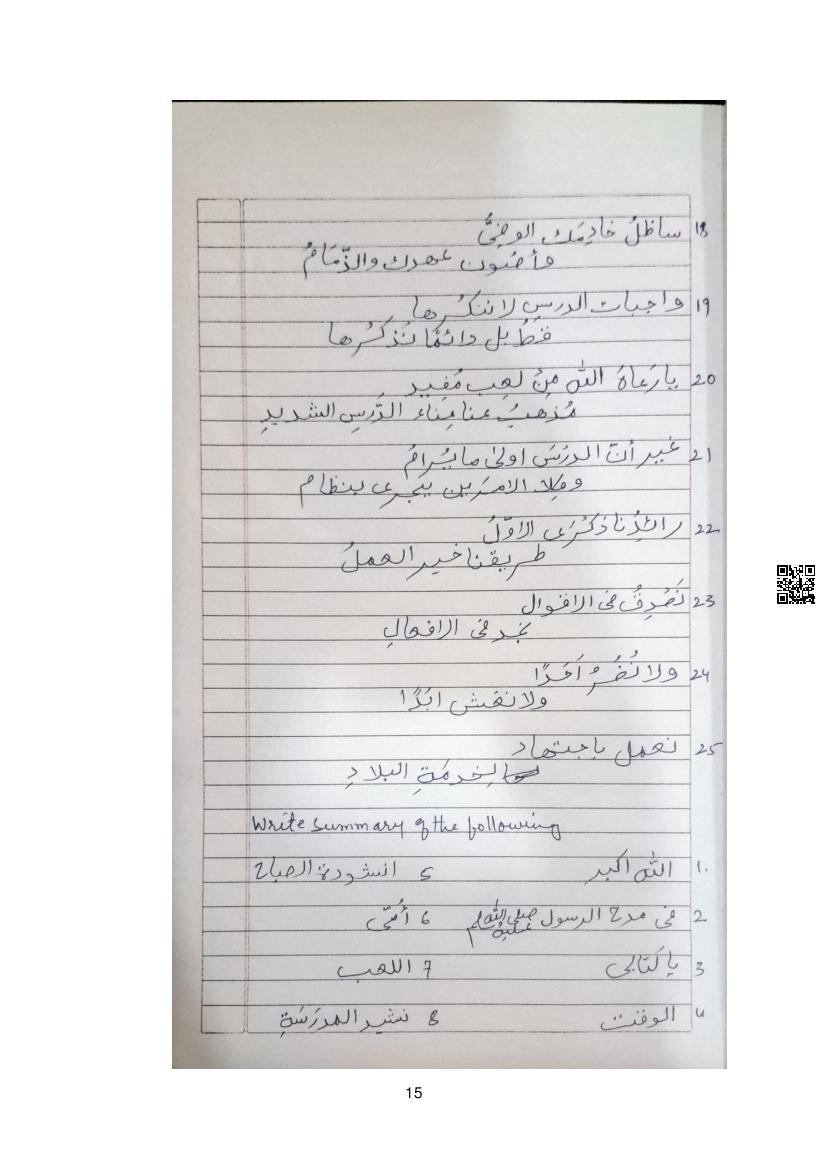 18 ساظلُ خادِمَك الوفِىُّ
وأصُون عهدك والذّمَامُ
19 واجبات الدرسِ لا ننكُرها
قطُ بل دائمًا نَذكُرها
20 يا رَعاهَ الله مِنْ لعِب مُفِيدٍ
مُذهِبُ عنا عِناء الدَّرسِ الشديدِ
21 غير أنّ الدرْسَ اولىٰ ما يُرامُ
وكِلا الامرَين يَجرى بنظام
22 رائِدُنا ذِكْرَى الاوّلُ
طريقنا خير العملُ
23 نَصْدِقُ فى الاقوال
نجد فى الافعالِ
24 ولا نُضَرُ اَحَدًا
ولا نغش ابَدًا
25 نعمل باجتهاد
لِخدمَةِ البلادِ
Write summary of the following
1. الله اكبر 5 انشودة الصباح
2 فى مدح الرسول صلى الله عليه وسلم 6 أُمّى
3 يا كتابى 7 اللعب
4 الوقت 8 نشيد المدرَسَةِ
15